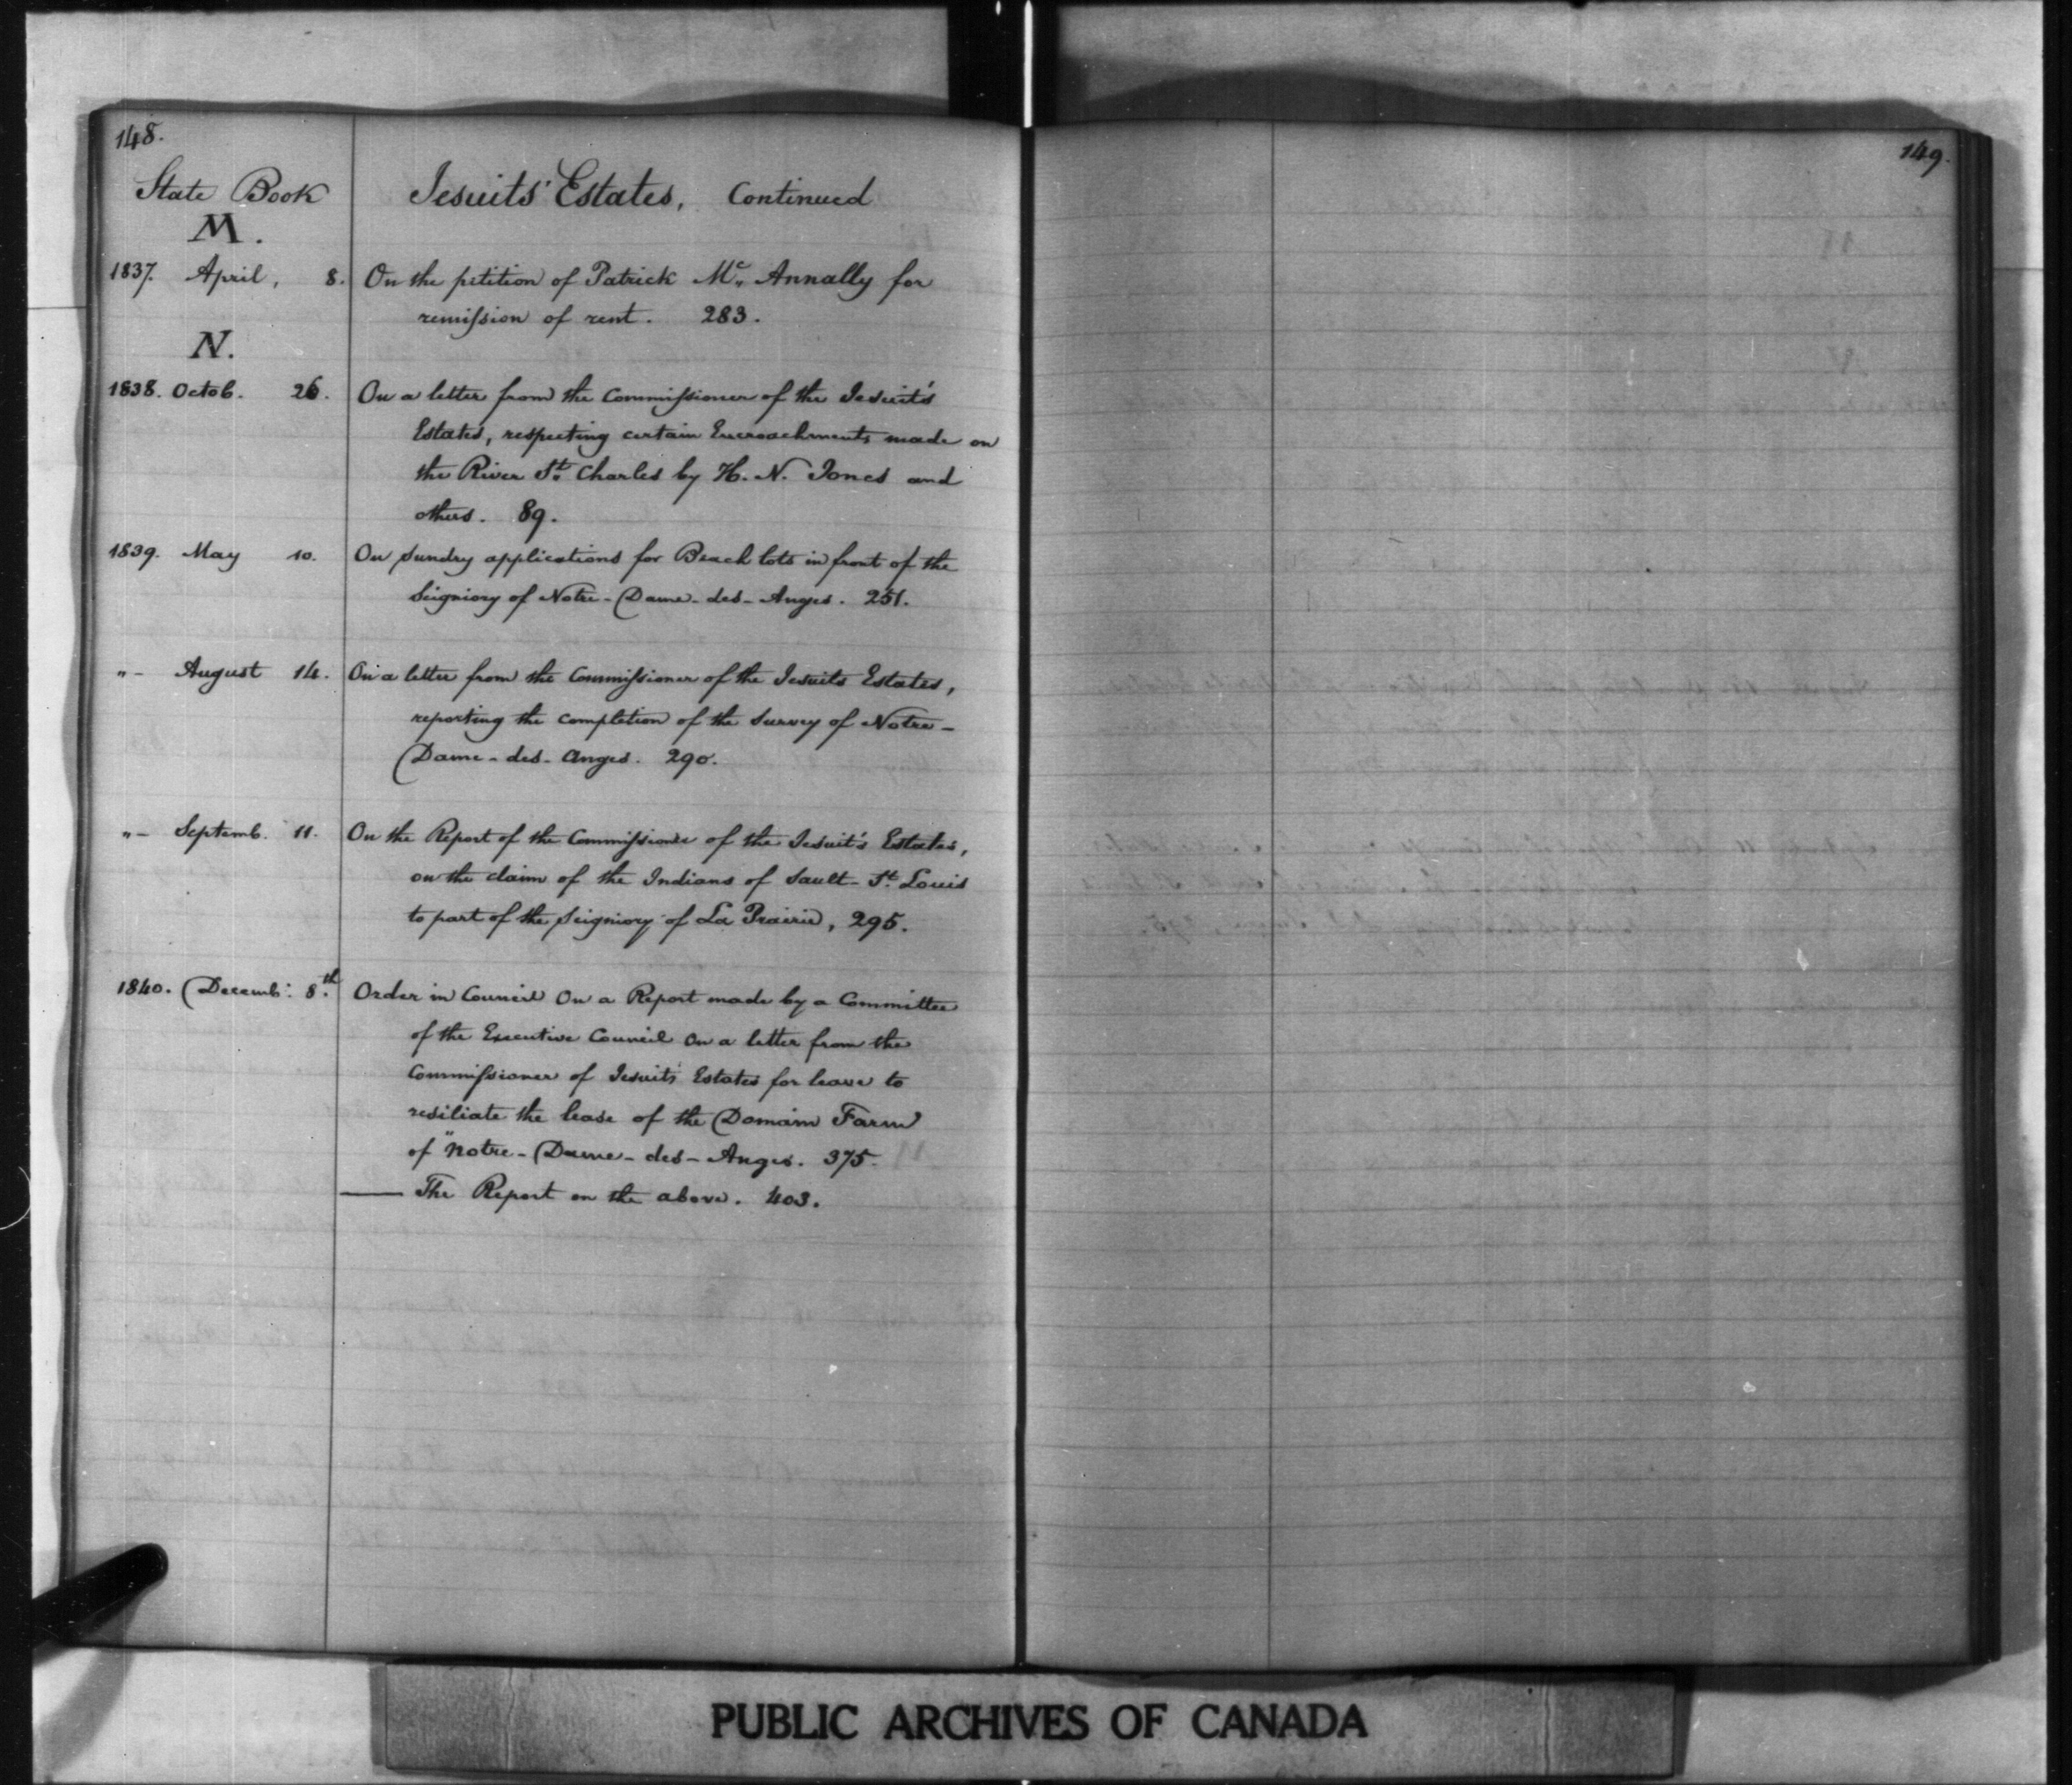 148.
State Book
Jesuits' Estates, Continued
M.
1837. April, 8. On the petition of Patrick Mc. Annally for
remission of rent. 283.
N.
1838. Octob. 26. On a letter from the Commissioner of the Jesuit's
Estates, respecting certain Encroachments made on
the River St. Charles by H. N. Jones and
others. 89.
1839. May 10. On Sundry applications for Beach lots in front of the
Seigniory of Notre-Dame-des-Anges. 251.
"- August 14. On a letter from the Commissioner of the Jesuits Estates,
reporting the completion of the Survey of Notre-
Dame-des-Anges. 290.
"- Septemb. 11. On the Report of the Commissioner of the Jesuit's Estates,
on the claim of the Indians of Sault-St. Louis
to part of the Seigniory of La Prairie, 295.
1840. Decemb: 8.th Order in Council On a Report made by a Committee
of the Executive Council On a letter from the
Commissioner of Jesuits' Estates for leave to
resiliate the lease of the Domain Farm
of "Notre-Dame-des-Anges. 375.
— The Report on the above. 403.
149.
PUBLIC ARCHIVES OF CANADA